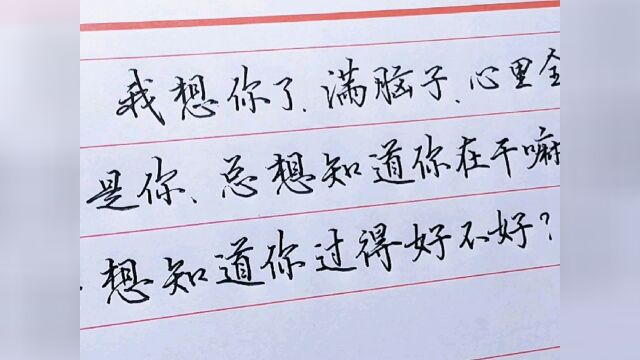 我想你了、满脑子、心里全
是你、总想知道你在干嘛
、想知道你过得好不好？